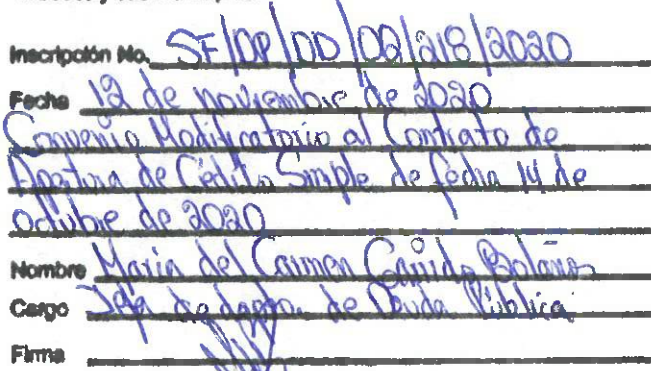 Inscripción No. SF/DP/DD/02/218/2020
Fecha 12 de noviembre de 2020
Convenio Modificatorio al Contrato de
Apertura de Crédito Simple de fecha 14 de
octubre de 2020
Nombre María del Carmen Garrido Bolaños
Cargo Jefa de depto. de Deuda Pública
Firma